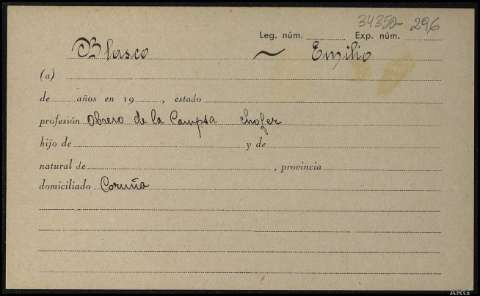 34352-296
Leg. núm. Exp. núm.
Blasco ~ Emilio
(a)
de años en 19 , estado
profesión Obrero de la Campsa chofer
hijo de y de
natural de , provincia
domiciliado Coruña
ARG